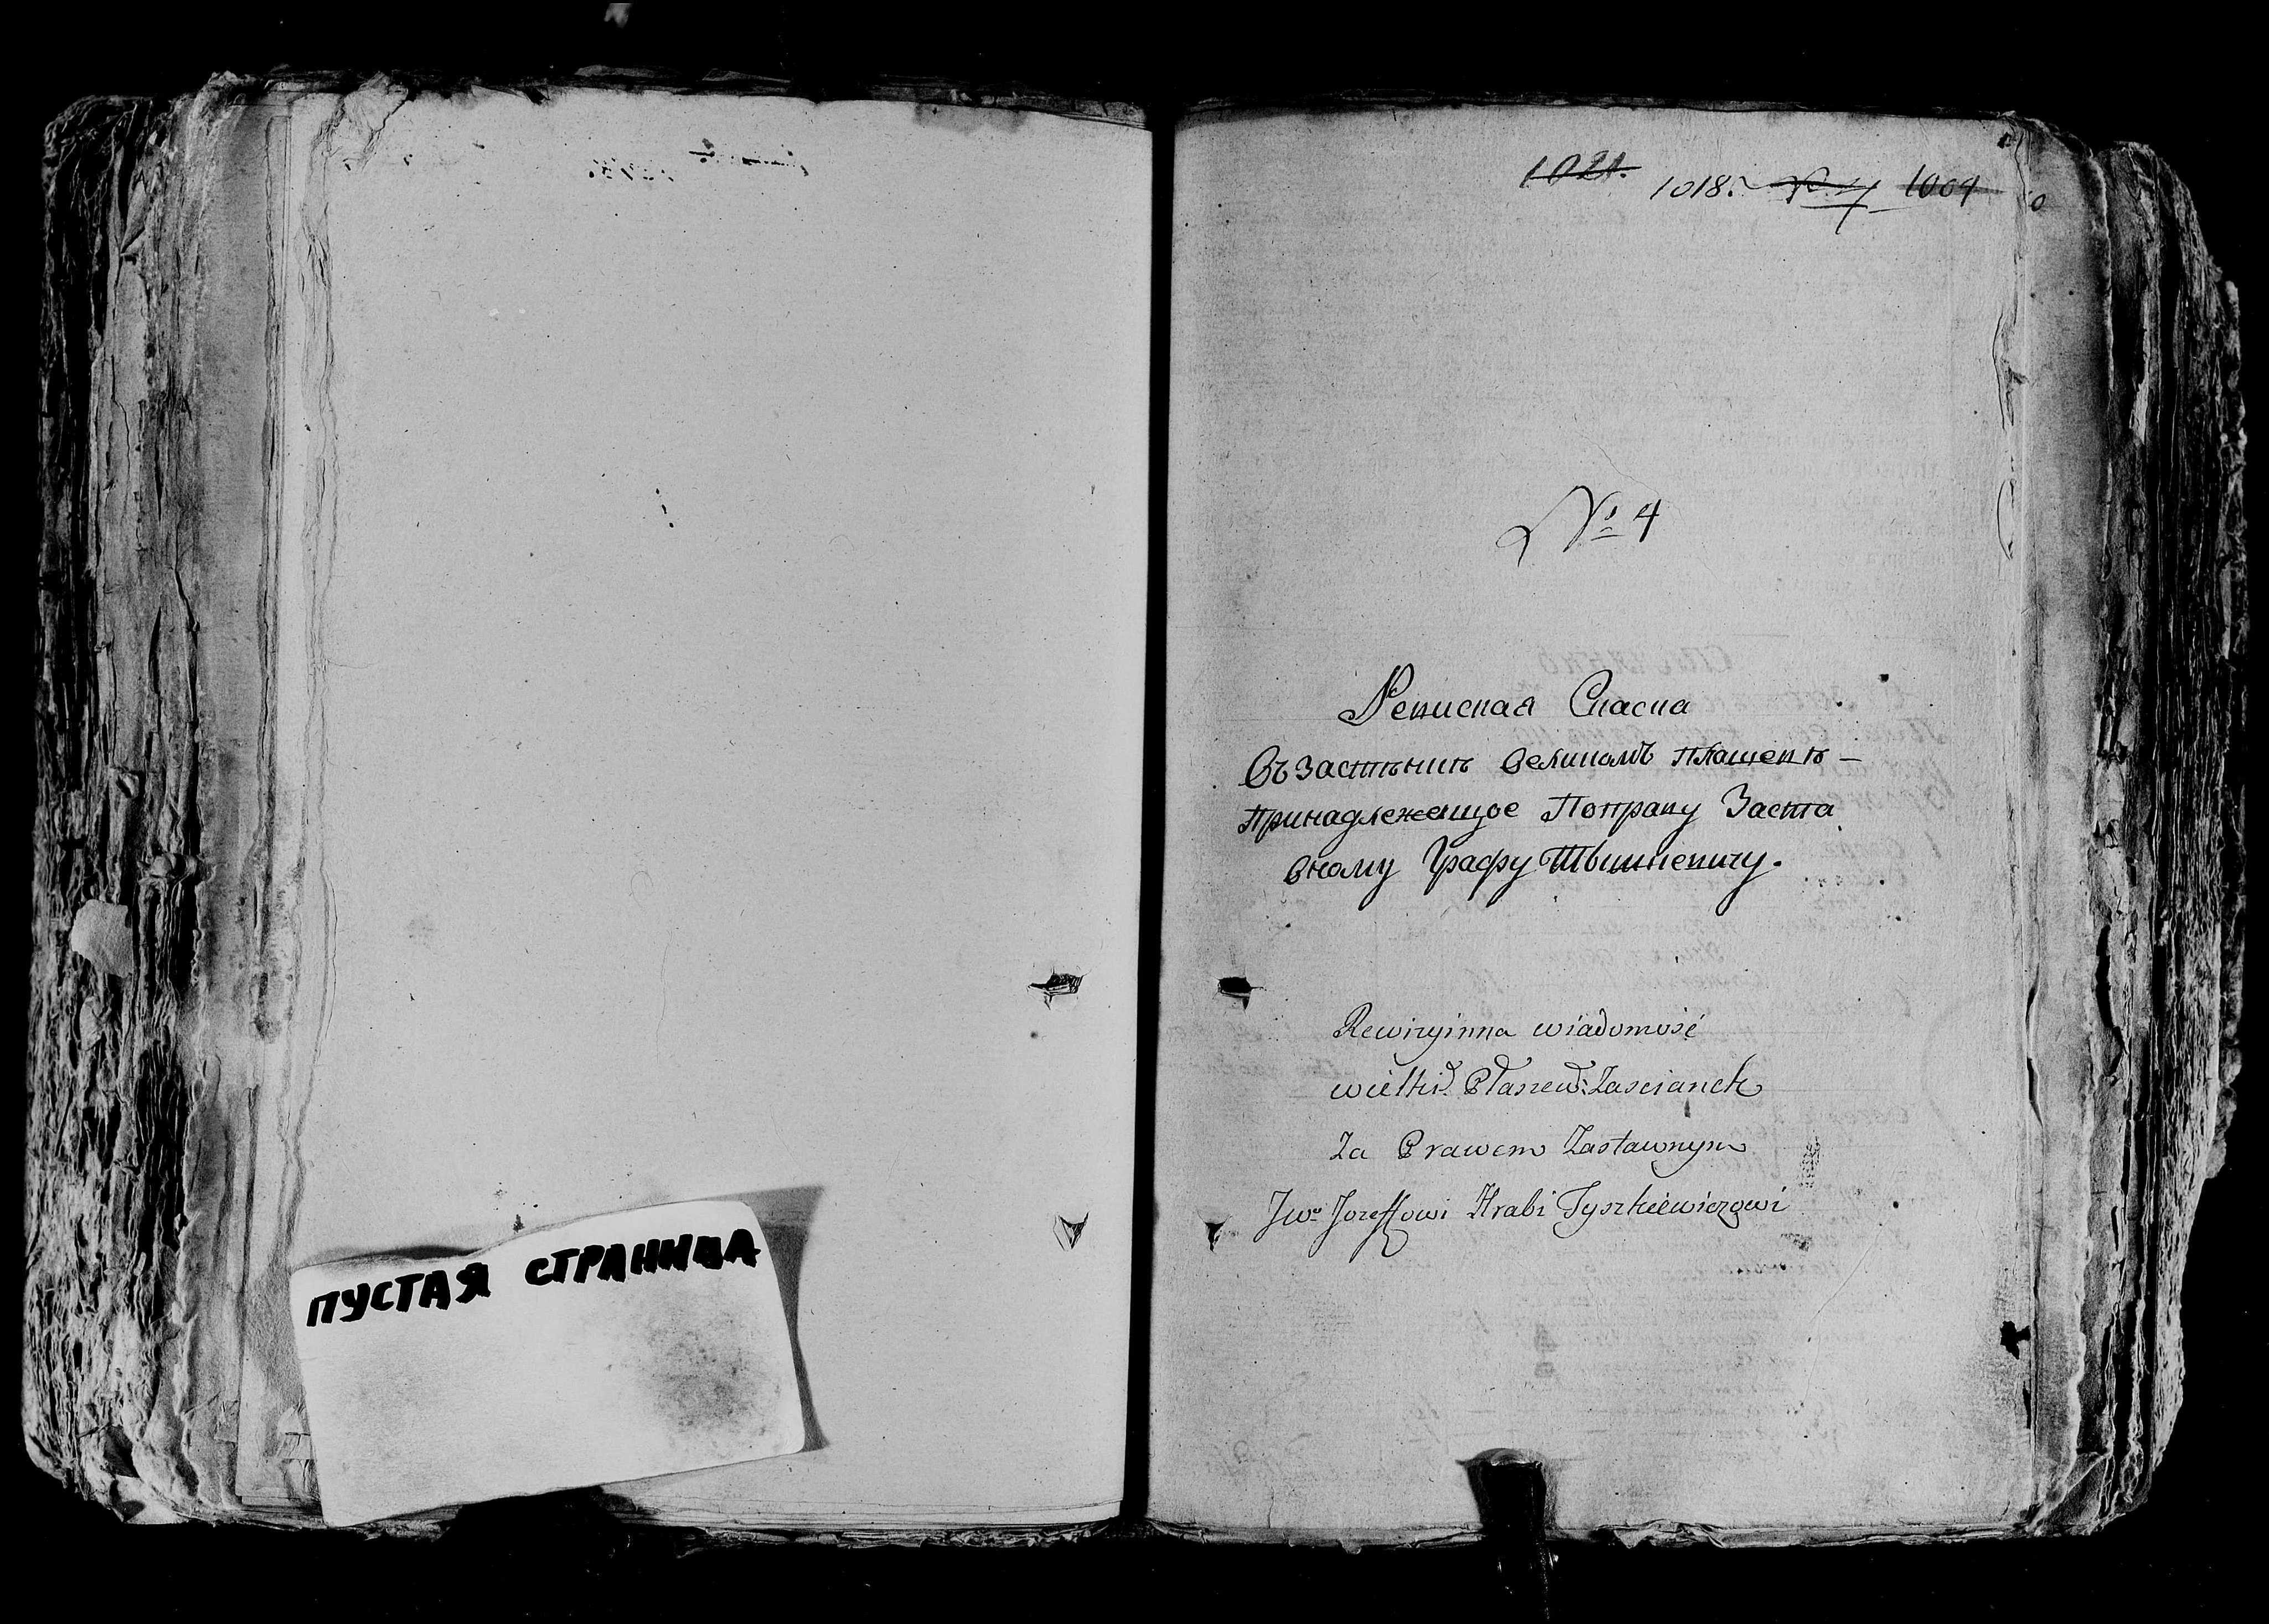 ПУСТАЯ СТРАНИЦА
1021.
1018. 1004
№ 4
Ревиская Скаска
Въ застѣнкѣ великомъ плащевѣ –
принадлежащое Поправу Заста
вному Графу Тышкевичу.
Rewizyjnna wiadomość
wielki. Płaszew: Zascianek
Za Prawem Zastawnym
Jwo Jozeffowi Hrabi Tyszkiewiczowi